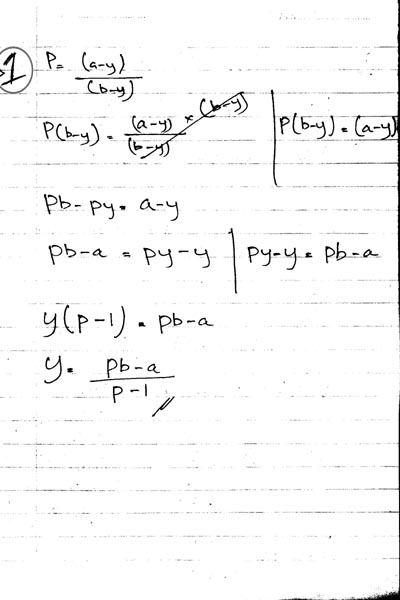 1 P = (a-y) / (b-y)
P(b-y) = (a-y) / (b-y) × (b-y) | P(b-y) = (a-y)
Pb - py = a-y
pb-a = py-y | py-y = pb-a
y(p-1) = pb-a
y = pb-a / p-1 //